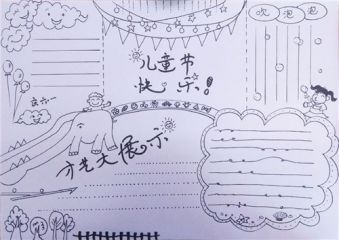 吹泡泡
儿童节
快乐!
庆六一
才艺大展示